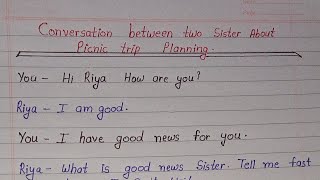 Conversation between two Sister About
Picnic trip Planning.
You - Hi Riya How are you?
Riya - I am good.
You - I have good news for you.
Riya - What is good news Sister. Tell me fast